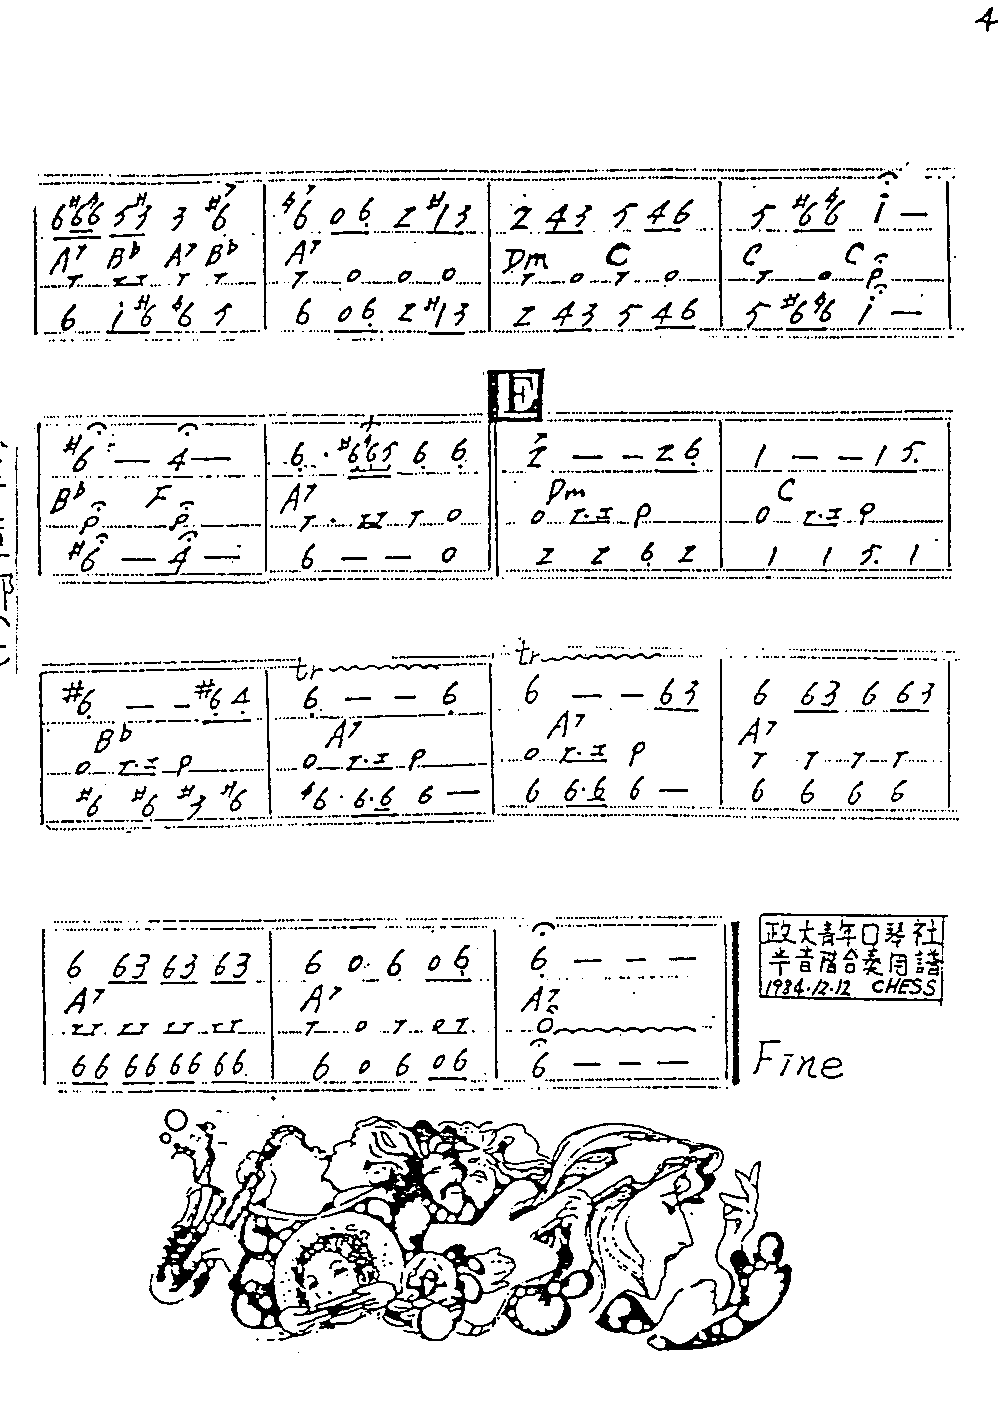 4
6 #6 ♮6 5 #3 3 #6 ♮6 0 6 2 #1 3 2 4 3 5 4 6 5 #6 ♮6 i —
A7 Bb A7 Bb A7 Dm C C C
T T T T T T 0 0 0 T 0 T 0 T 0 P
6 i #6 ♮6 5 6 0 6 2 #1 3 2 4 3 5 4 6 5 #6 ♮6 i —
E
#6 — 4 — 6 · #6 ♮6 5 6 6 2 — — 2 6 1 — — 1 5
Bb F A7 Dm C
P P T · T T T 0 0 T·I P 0 T·I P
#6 — 4 — 6 — — 0 2 2 6 2 1 1 5 1
tr tr
#6 — — #6 4 6 — — 6 6 — — 6 3 6 6 3 6 6 3
Bb A7 A7 A7
0 T·I P 0 T·I P 0 T·I P T T T T
#6 #6 #3 #6 ♮6 · 6 · 6 6 — 6 6 · 6 6 — 6 6 6 6
6 6 3 6 3 6 3 6 0 6 0 6 6 — — —
A7 A7 A7
T T T T T T T T T 0 T 0 T 0
6 6 6 6 6 6 6 6 6 0 6 0 6 6 — — —
政大青年口琴社
半音階合奏用譜
1984.12.12 CHESS
Fine